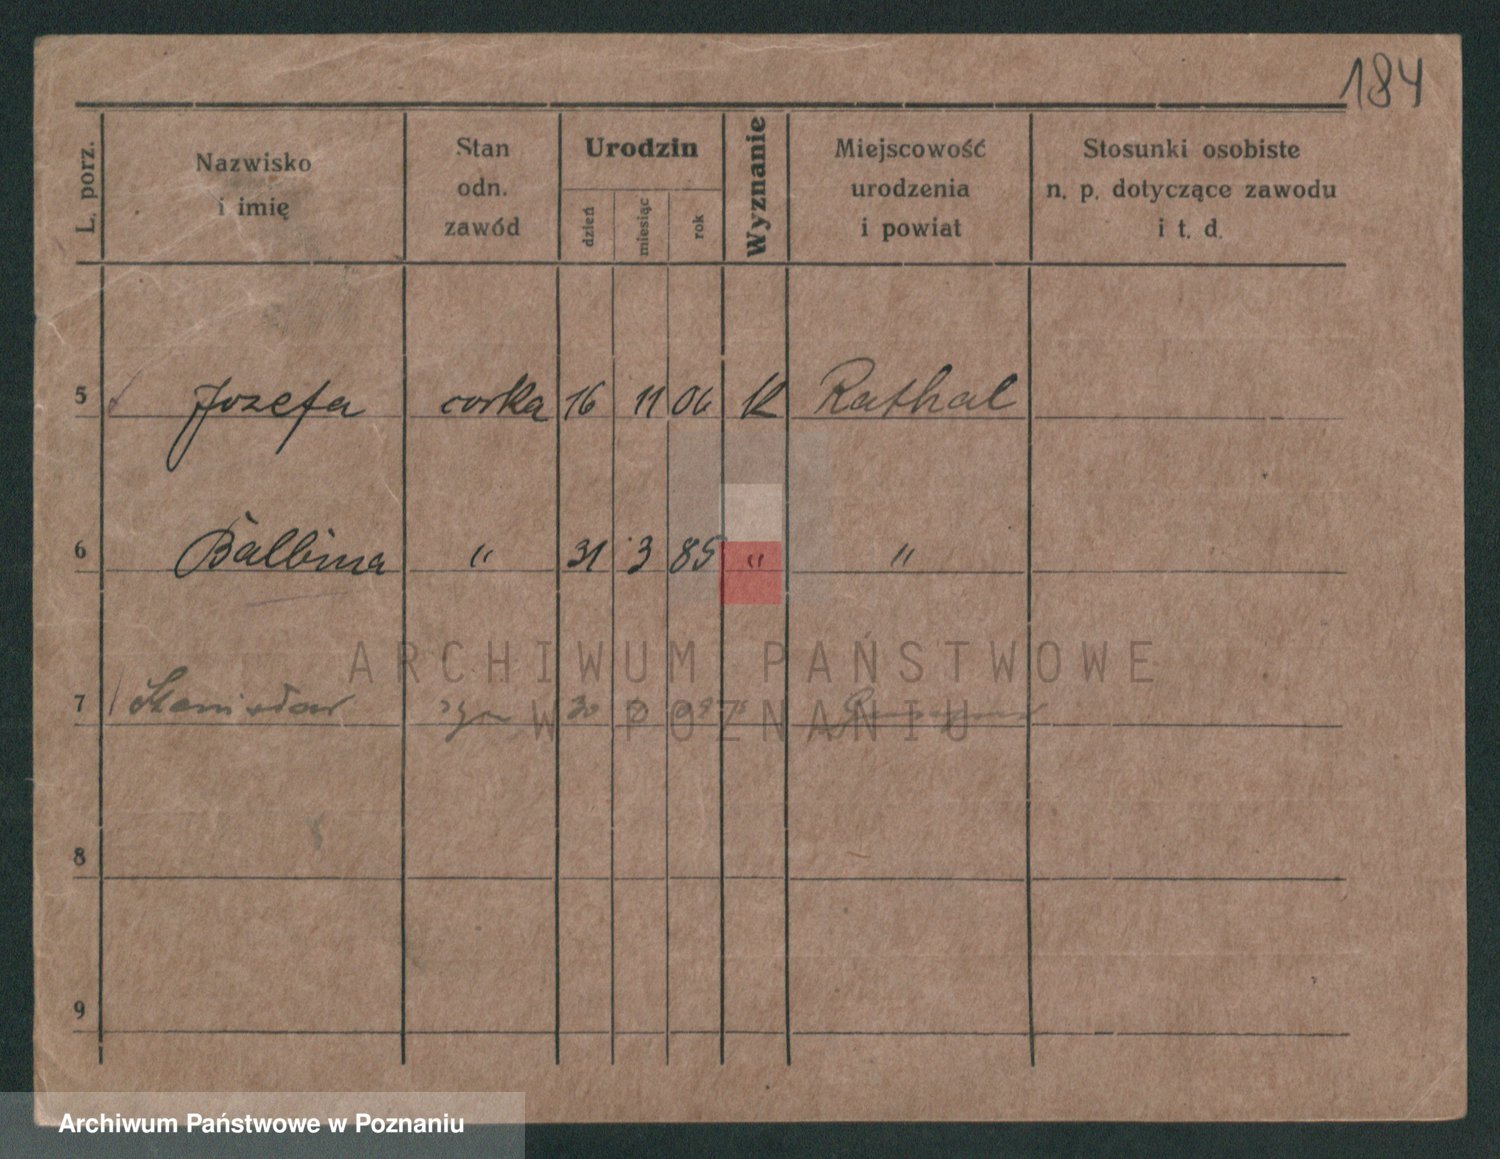 184
L. porz.
Nazwisko
i imię
Stan
odn.
zawód
Urodzin
dzień
miesiąc
rok
Wyznanie
Miejscowość
urodzenia
i powiat
Stosunki osobiste
n. p. dotyczące zawodu
i t. d.
5 Jozefa corka 16 11 06 K Rathal
6 Balbina " 31 3 85 " "
7 Stanisław syn 30
8
9
ARCHIWUM PAŃSTWOWE
W POZNANIU
Archiwum Państwowe w Poznaniu